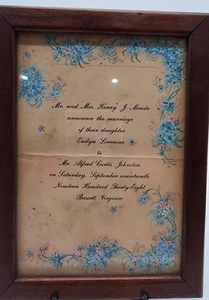 Mr. and Mrs. Henry J. Meads
announce the marriage
of their daughter
Evelyn Lorraine
to
Mr. Alfred Curtis Johnston
on Saturday, September seventeenth
Nineteen Hundred Thirty-Eight
Bassett, Virginia